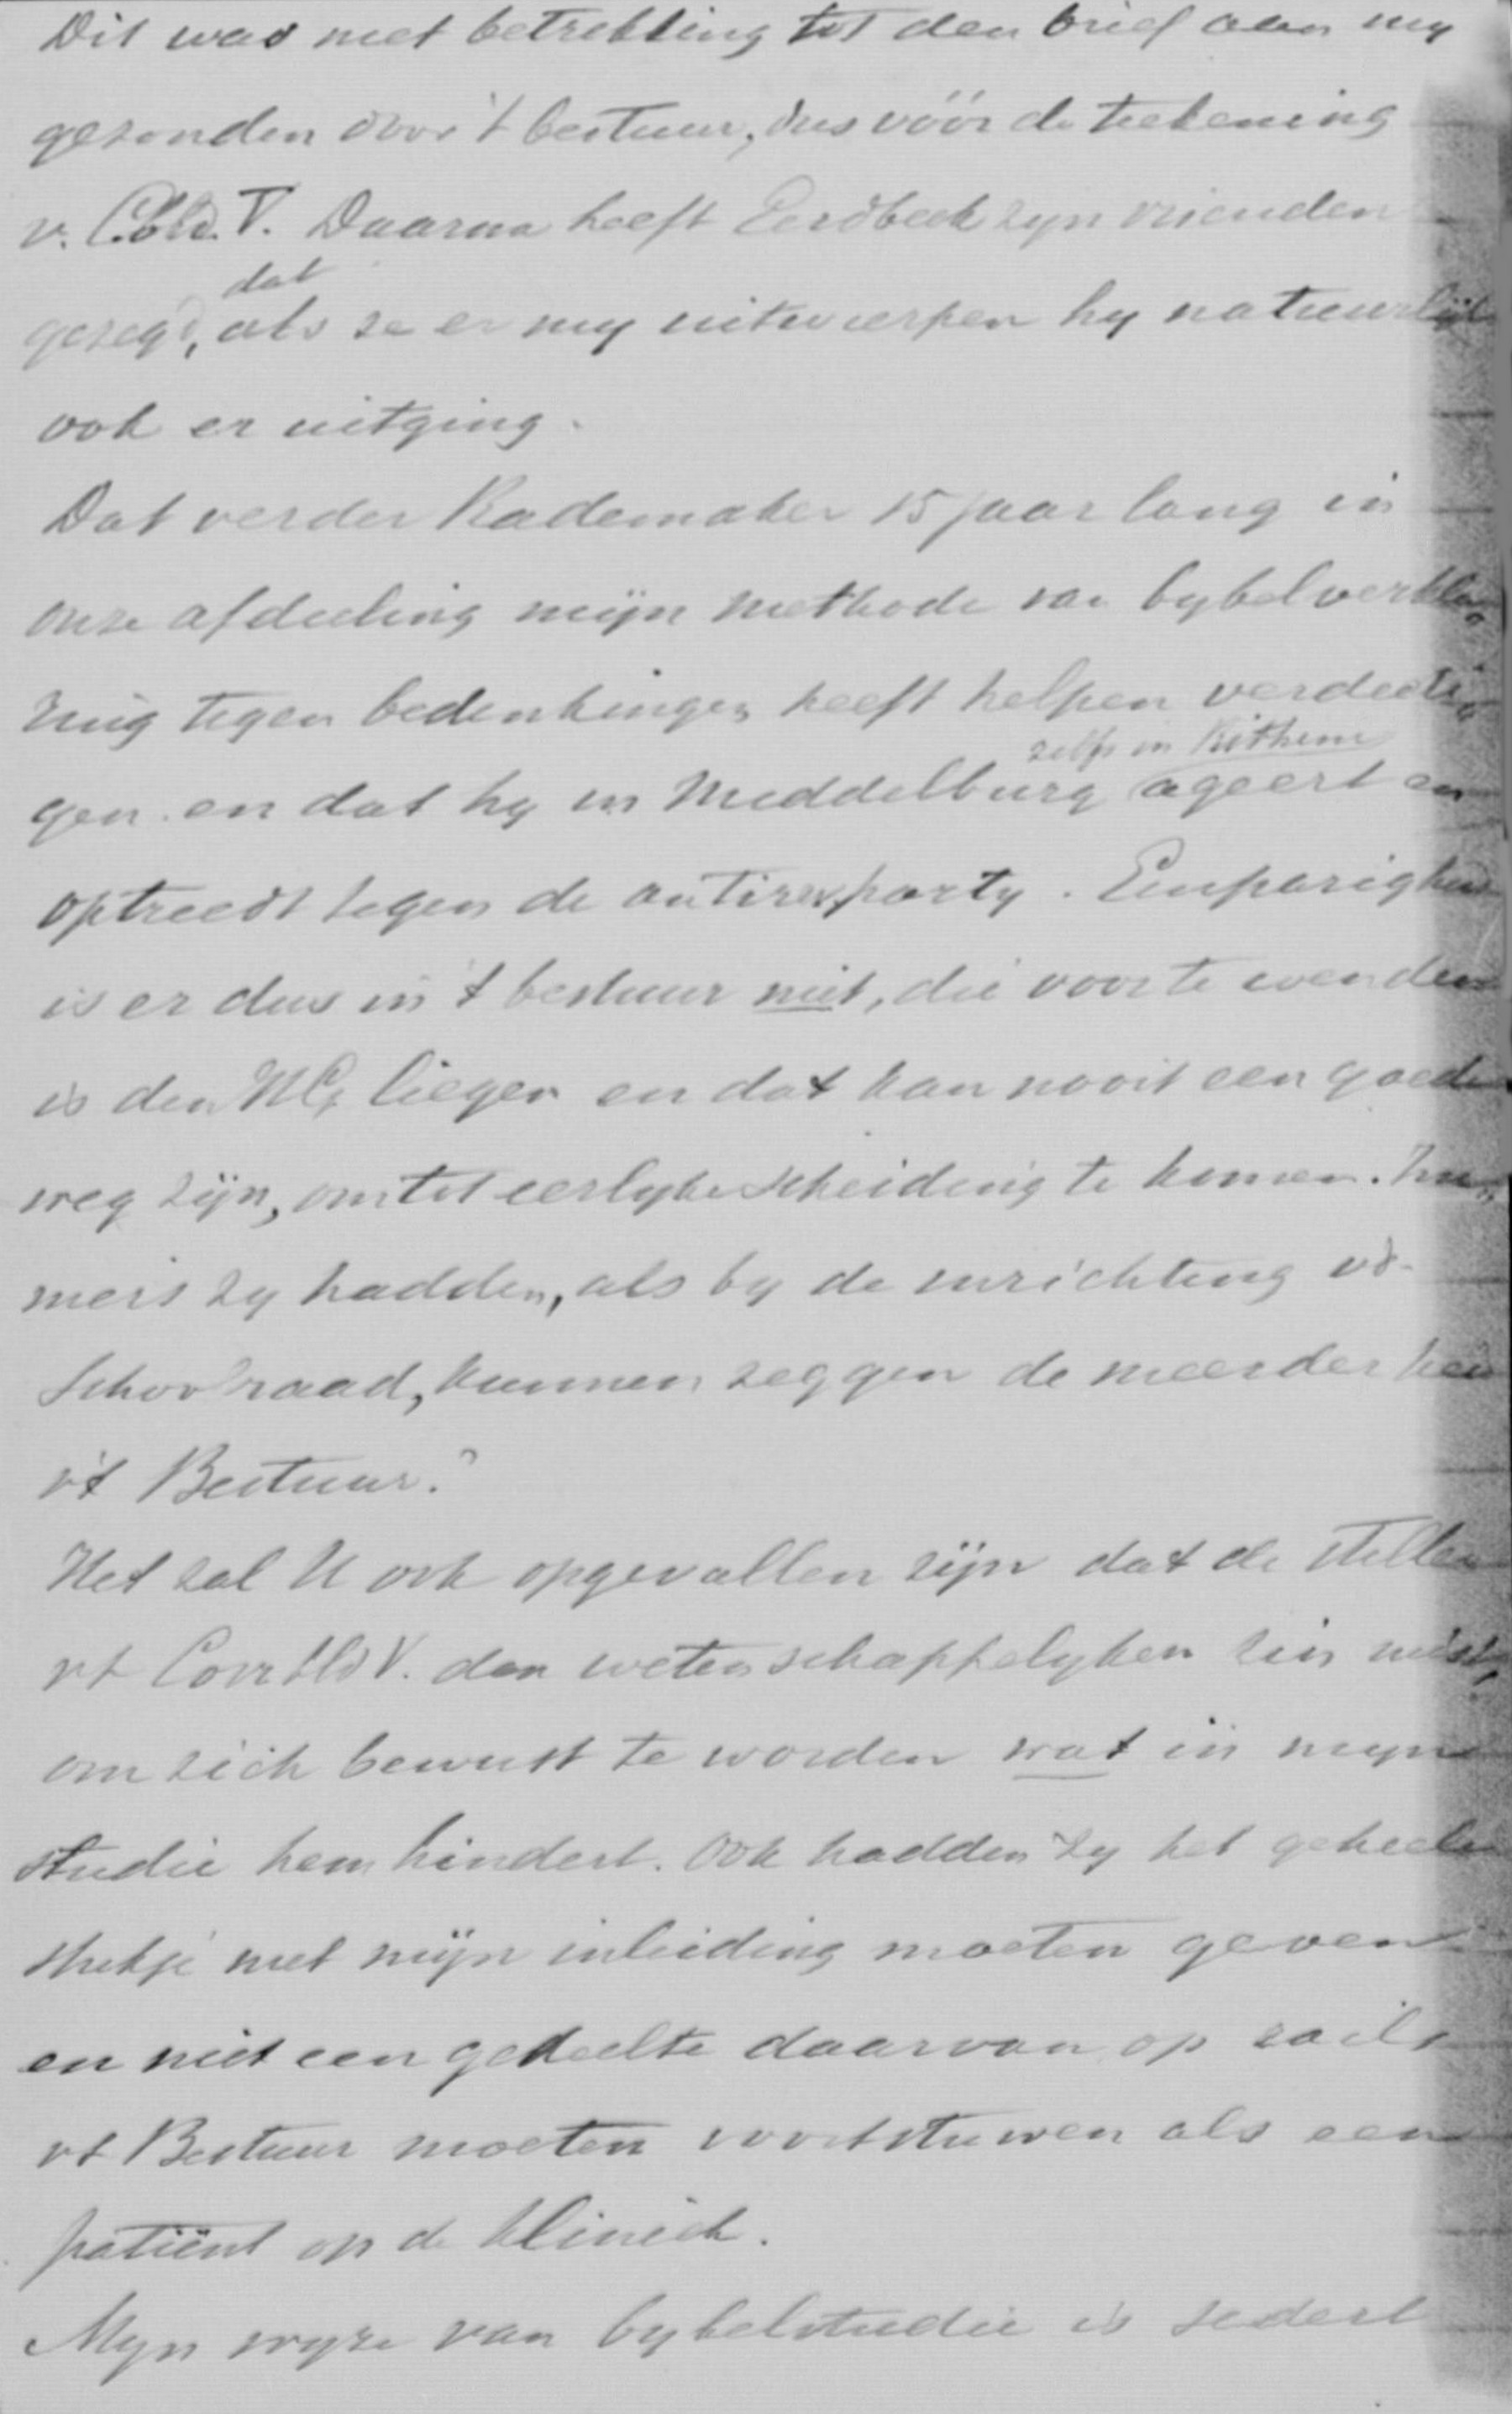 Dit was met betrekking tot den brief aan my
gezonden door 't bestuur, dus vóór de teekening
v. Daarna heeft Eerdbeek zyn vrienden
dat
gezegd, als ze er my uitwierpen hy natuurlijk
ook er uitging.
Dat verder Rademaker 15 jaar lang in
onze afdeeling mijn methode van bybelverkla„
ring tegen bedenkingen heeft helpen verdedi„
zelfs in Ritthem
gen en dat hy in Middelburg ageert en
optreedt tegen de antirev. party. Eenparigheid
is er dus in 't bestuur niet, die voor te wenden
is den liegen en dat kan nooit een goede
weg zijn, om tot eerlyke scheiding te komen. Im„
mers zy hadden, als by de inrichting vd
Schoolraad, kunnen zeggen de meerderheid
v't Bestuur?
Het zal U ook opgevallen zijn dat de steller
vt V. den wetenschappelyken zin mist,
om zich bewust te worden wat in myne
studie hem hindert. Ook hadden zy het geheele
stukje met mijn inleiding moeten geven
en niet een gedeelte daarvan op rails
vt Bestuur moeten voortstuwen als een
patiënt op de kliniek.
Myn wyze van bybelstudie is sedert